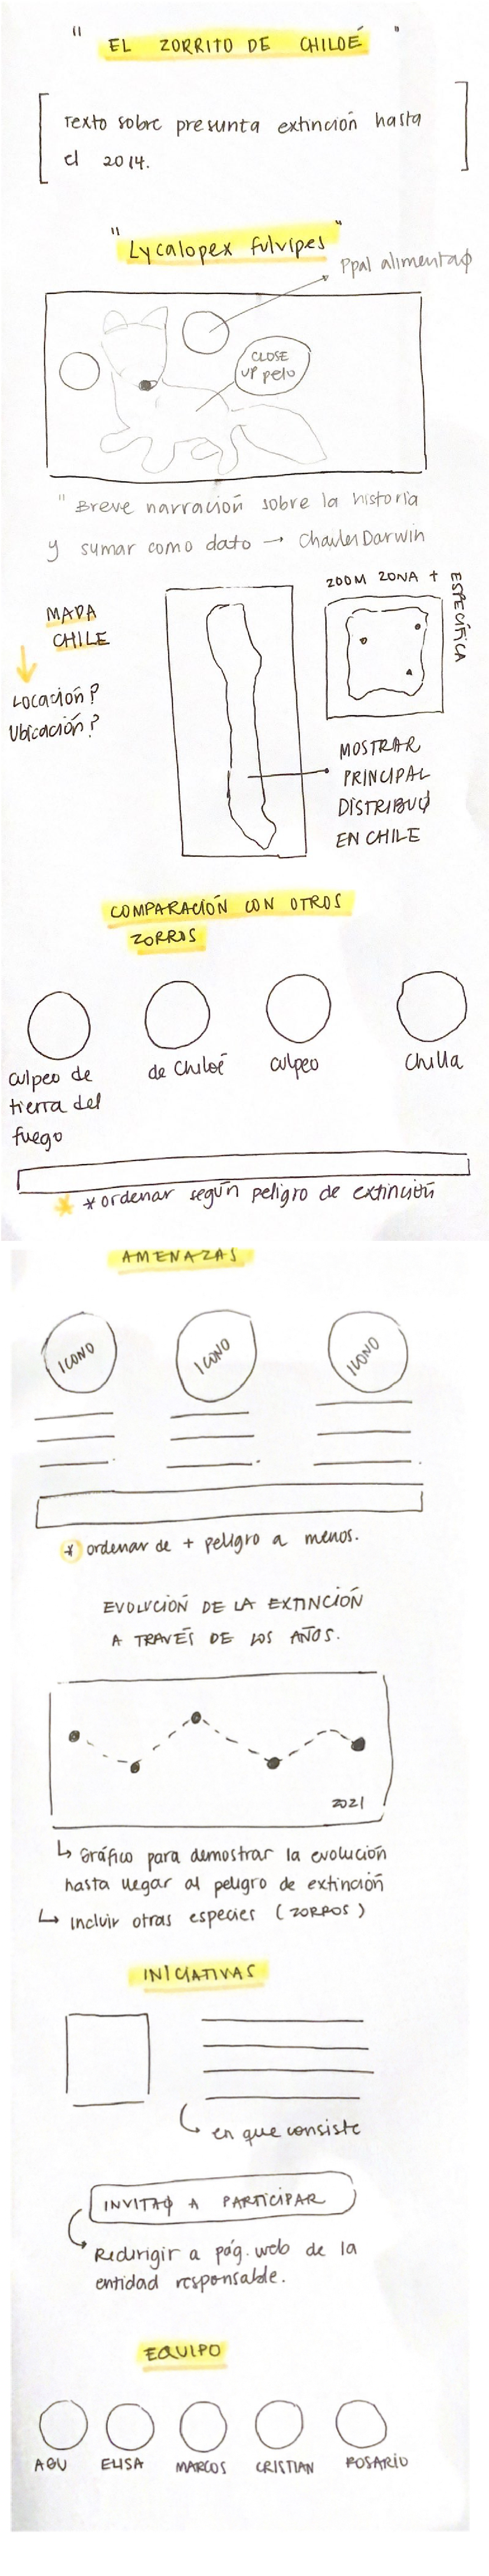 " EL ZORRITO DE CHILOÉ "
Texto sobre presunta extinción hasta
el 2014.
"Lycalopex fulvipes"
Ppal alimentaφ
CLOSE
UP pelo
" Breve narración sobre la historia
y sumar como dato → Charles Darwin
ZOOM ZONA +
ESPECÍFICA
MAPA
CHILE
Locación?
Ubicación?
MOSTRAR
PRINCIPAL
DISTRIBUφ
EN CHILE
COMPARACIÓN CON OTROS
ZORROS
culpeo de
tierra del
fuego
de Chiloé
culpeo
Chilla
* ordenar según peligro de extinción
AMENAZAS
ICONO
ICONO
ICONO
* ordenar de + peligro a menos.
EVOLUCIÓN DE LA EXTINCIÓN
A TRAVÉS DE LOS AÑOS.
2021
↳ Gráfico para demostrar la evolución
hasta llegar al peligro de extinción
↳ Incluir otras especies (ZORROS)
INICIATIVAS
en que consiste
INVITAφ A PARTICIPAR
Redirigir a pág. web de la
entidad responsable.
EQUIPO
AGU
ELISA
MARCOS
CRISTIAN
ROSARIO